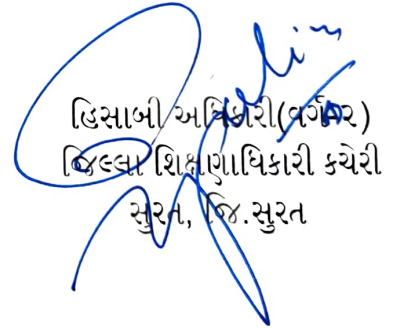 હિસાબી અધિકારી(વર્ગ-૨)
જિલ્લા શિક્ષણાધિકારી કચેરી
સુરત, જિ.સુરત